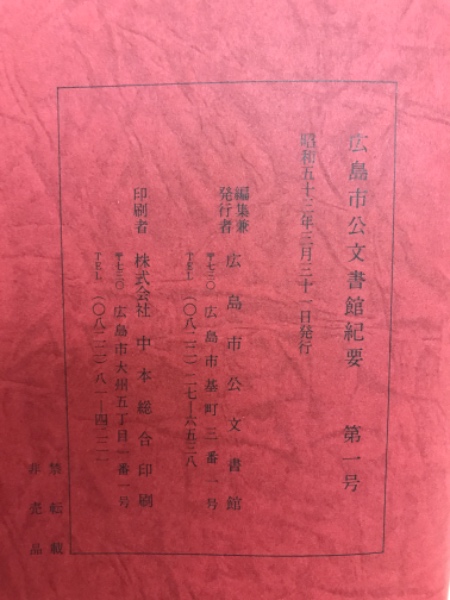 広島市公文書館紀要 第一号
昭和五十三年三月三十一日発行
編集兼
発行者 広島市公文書館
〒七三〇 広島市基町三番一号
TEL (〇八二二)二七―六五三八
印刷者 株式会社 中本総合印刷
〒七三〇 広島市大州五丁目一番一号
TEL (〇八二二)八一―四二二一
禁転載
非売品